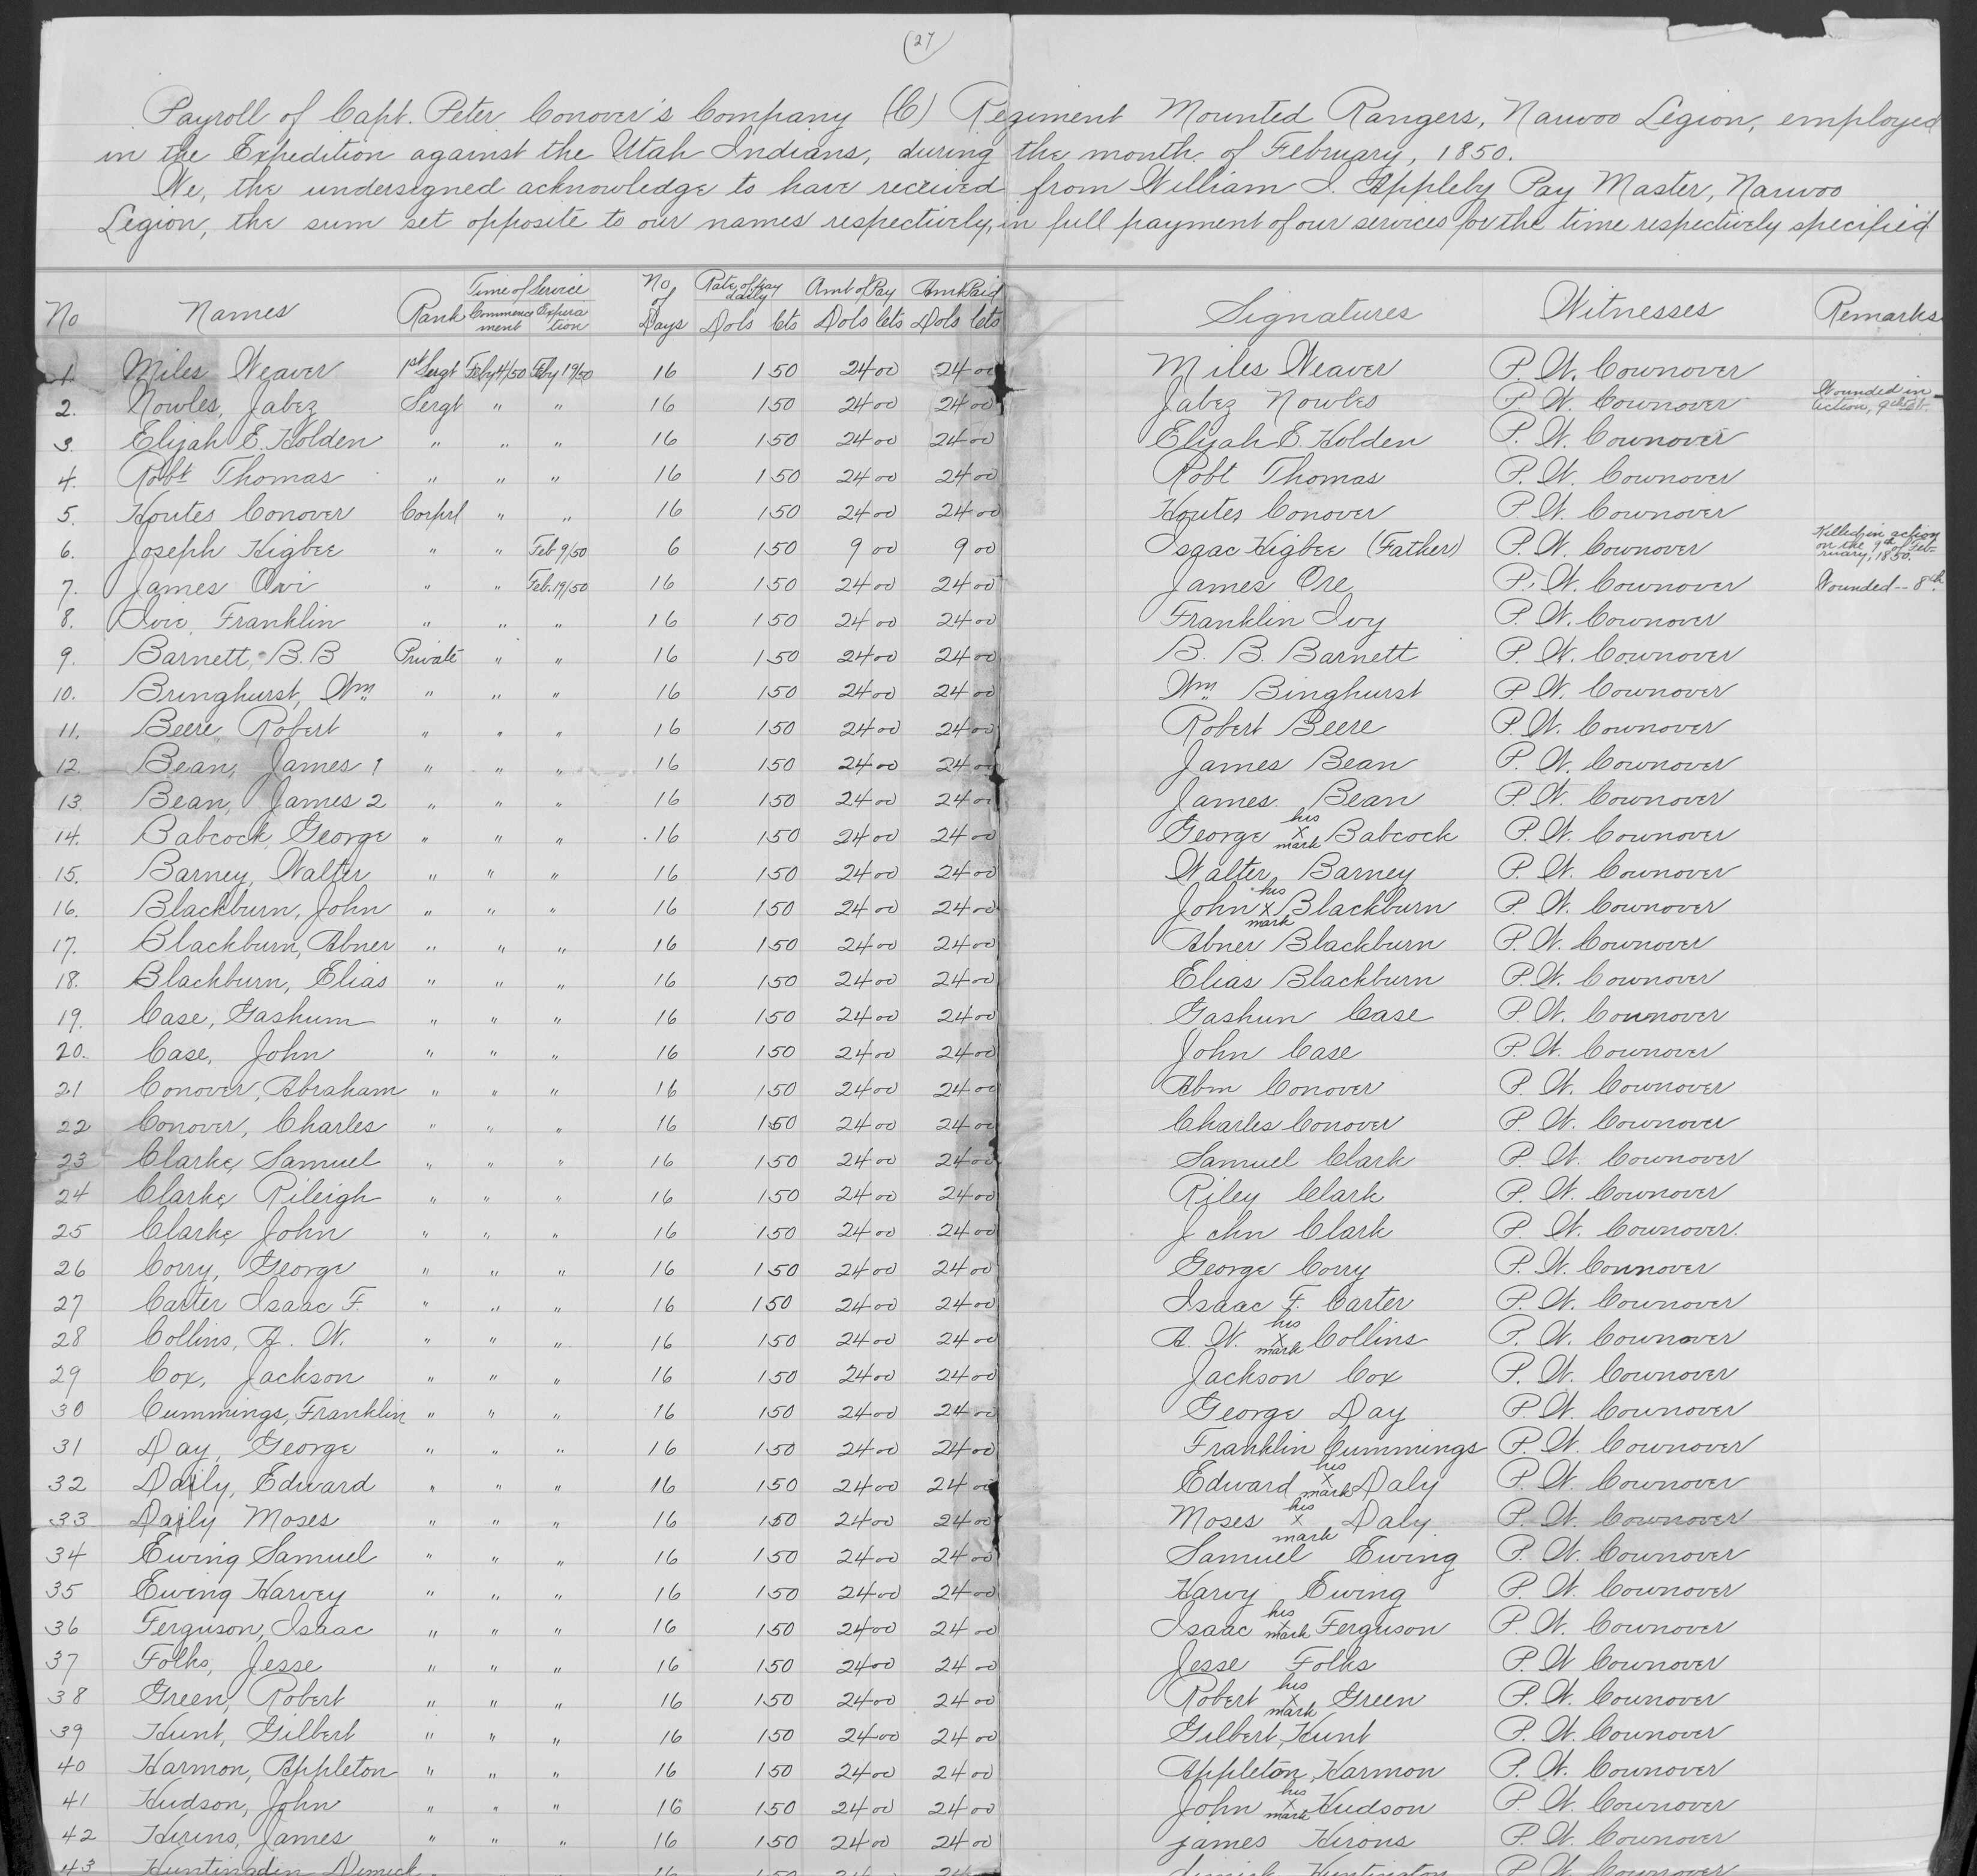 (27)
Payroll of Capt. Peter Conover's Company (C) Regiment Mounted Rangers, Nauvoo Legion, employed
in the Expedition against the Utah Indians, during the month of February, 1850.
We, the undersigned acknowledge to have received from William I. Appleby Pay Master, Nauvoo
Legion, the sum set opposite to our names respectively, in full payment of our services for the time respectively specified
No Names Rank Time of Service Commencement Expiration No of Days Rate of pay daily Dols Cts Amt of Pay Dols Cts Amt Paid Dols Cts Signatures Witnesses Remarks
1. Miles Weaver 1st Sergt Feby 4/50 Feby 19/50 16 1 50 24 00 24 00 Miles Weaver P. W. Cownover
2. Nowles, Jabez Sergt " " 16 1 50 24 00 24 00 Jabez Nowles P. W. Cownover Wounded in action,
3. Elijah E. Holden " " " 16 1 50 24 00 24 00 Elijah E. Holden P. W. Cownover
4. Robt Thomas " " " 16 1 50 24 00 24 00 Robt Thomas P. W. Cownover
5. Houtes Conover Corprl " " 16 1 50 24 00 24 00 Houtes Conover P. W. Cownover
6. Joseph Higbee " " Feb 9/50 6 1 50 9 00 9 00 Isaac Higbee (Father) P. W. Cownover Killed in action on the 9th of February, 1850.
7. James Orvi " " Feb. 19/50 16 1 50 24 00 24 00 James Ore P. W. Cownover Wounded -- 8th.
8. Ivie, Franklin " " " 16 1 50 24 00 24 00 Franklin Ivy P. W. Cownover
9. Barnett, B. B Private " " 16 1 50 24 00 24 00 B. B. Barnett P. W. Cownover
10. Bringhurst, Wm " " " 16 1 50 24 00 24 00 Wm Binghurst P. W. Cownover
11. Beere, Robert " " " 16 1 50 24 00 24 00 Robert Beere P. W. Cownover
12. Bean, James 1 " " " 16 1 50 24 00 24 00 James Bean P. W. Cownover
13. Bean, James 2 " " " 16 1 50 24 00 24 00 James Bean P. W. Cownover
14. Babcock, George " " " 16 1 50 24 00 24 00 George his x mark Babcock P. W. Cownover
15. Barney, Walter " " " 16 1 50 24 00 24 00 Walter Barney P. W. Cownover
16. Blackburn, John " " " 16 1 50 24 00 24 00 John his x mark Blackburn P. W. Cownover
17. Blackburn, Abner " " " 16 1 50 24 00 24 00 Abner Blackburn P. W. Cownover
18. Blackburn, Elias " " " 16 1 50 24 00 24 00 Elias Blackburn P. W. Cownover
19. Case, Gashum " " " 16 1 50 24 00 24 00 Gashun Case P. W. Cownover
20. Case, John " " " 16 1 50 24 00 24 00 John Case P. W. Cownover
21 Conover, Abraham " " " 16 1 50 24 00 24 00 Abm Conover P. W. Cownover
22 Conover, Charles " " " 16 1 50 24 00 24 00 Charles Conover P. W. Cownover
23 Clarke, Samuel " " " 16 1 50 24 00 24 00 Samuel Clark P. W. Cownover
24 Clarke, Rileigh " " " 16 1 50 24 00 24 00 Riley Clark P. W. Cownover
25 Clarke, John " " " 16 1 50 24 00 24 00 John Clark P. W. Cownover.
26 Corry, George " " " 16 1 50 24 00 24 00 George Corry P. W. Cownover
27 Carter Isaac F. " " " 16 1 50 24 00 24 00 Isaac F. Carter P. W. Cownover
28 Collins, A. W. " " " 16 1 50 24 00 24 00 A. W. his x mark Collins P. W. Cownover
29 Cox, Jackson " " " 16 1 50 24 00 24 00 Jackson Cox P. W. Cownover
30 Cummings, Franklin " " " 16 1 50 24 00 24 00 George Day P. W. Cownover
31 Day, George " " " 16 1 50 24 00 24 00 Franklin Cummings P. W. Cownover
32 Daily, Edward " " " 16 1 50 24 00 24 00 Edward his x mark Daly P. W. Cownover
33 Daily Moses " " " 16 1 50 24 00 24 00 Moses his x mark Daly P. W. Cownover
34 Ewing Samuel " " " 16 1 50 24 00 24 00 Samuel Ewing P. W. Cownover
35 Ewing Harvey " " " 16 1 50 24 00 24 00 Harvy Ewing P. W. Cownover
36 Ferguson, Isaac " " " 16 1 50 24 00 24 00 Isaac his x mark Ferguson P. W. Cownover
37 Folks, Jesse " " " 16 1 50 24 00 24 00 Jesse Folks P. W. Cownover
38 Green, Robert " " " 16 1 50 24 00 24 00 Robert his x mark Green P. W. Cownover
39 Hunt, Gilbert " " " 16 1 50 24 00 24 00 Gilbert Hunt P. W. Cownover
40 Harmon, Appleton " " " 16 1 50 24 00 24 00 Appleton Harmon P. W. Cownover
41 Hudson, John " " " 16 1 50 24 00 24 00 John his x mark Hudson P. W. Cownover
42 Hirins, James " " " 16 1 50 24 00 24 00 james Hirons P. W. Cownover
43 Huntingdin Dimick 16 1 50 24 24 Dimick Huntington P. W. Cownover